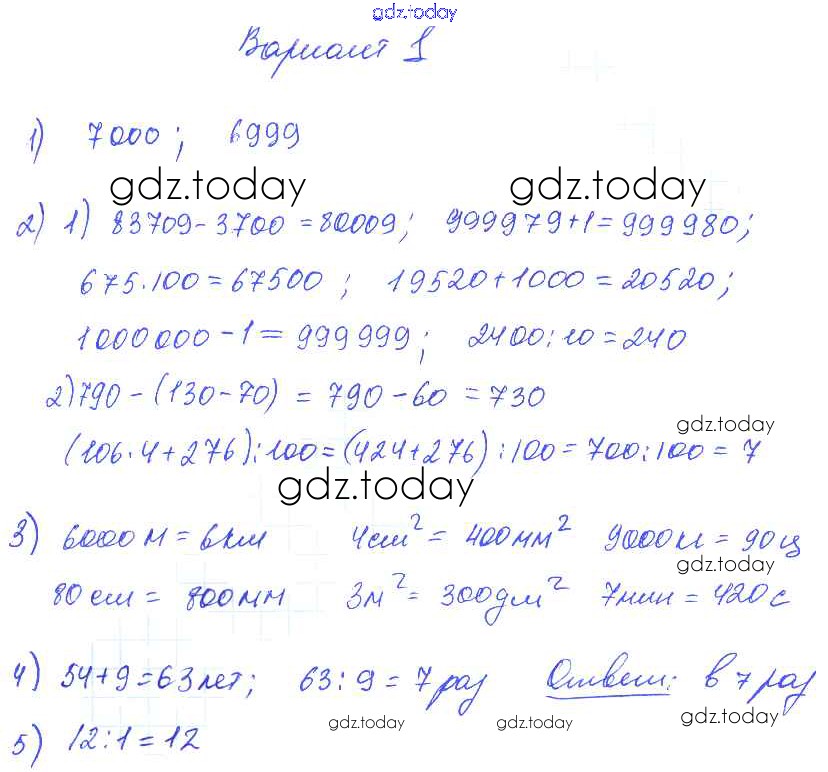 gdz.today
Вариант 1
1) 7000; 6999
gdz.today gdz.today
2) 1) 83709-3700=80009; 999979+1=999980;
675.100=67500; 19520+1000=20520;
1000000-1=999999; 2400:10=240
2)790-(130-70) = 790-60=730
gdz.today
(106.4+276):100=(424+276):100=700:100=7
gdz.today
3) 6000м=6км 4см²=400мм² 9000кг=90ц
gdz.today
80см=800мм 3м²=300дм² 7мин=420с
4) 54+9=63лет; 63:9=7раз Ответ: в 7 раз
gdz.today gdz.today gdz.today
5) 12:1=12